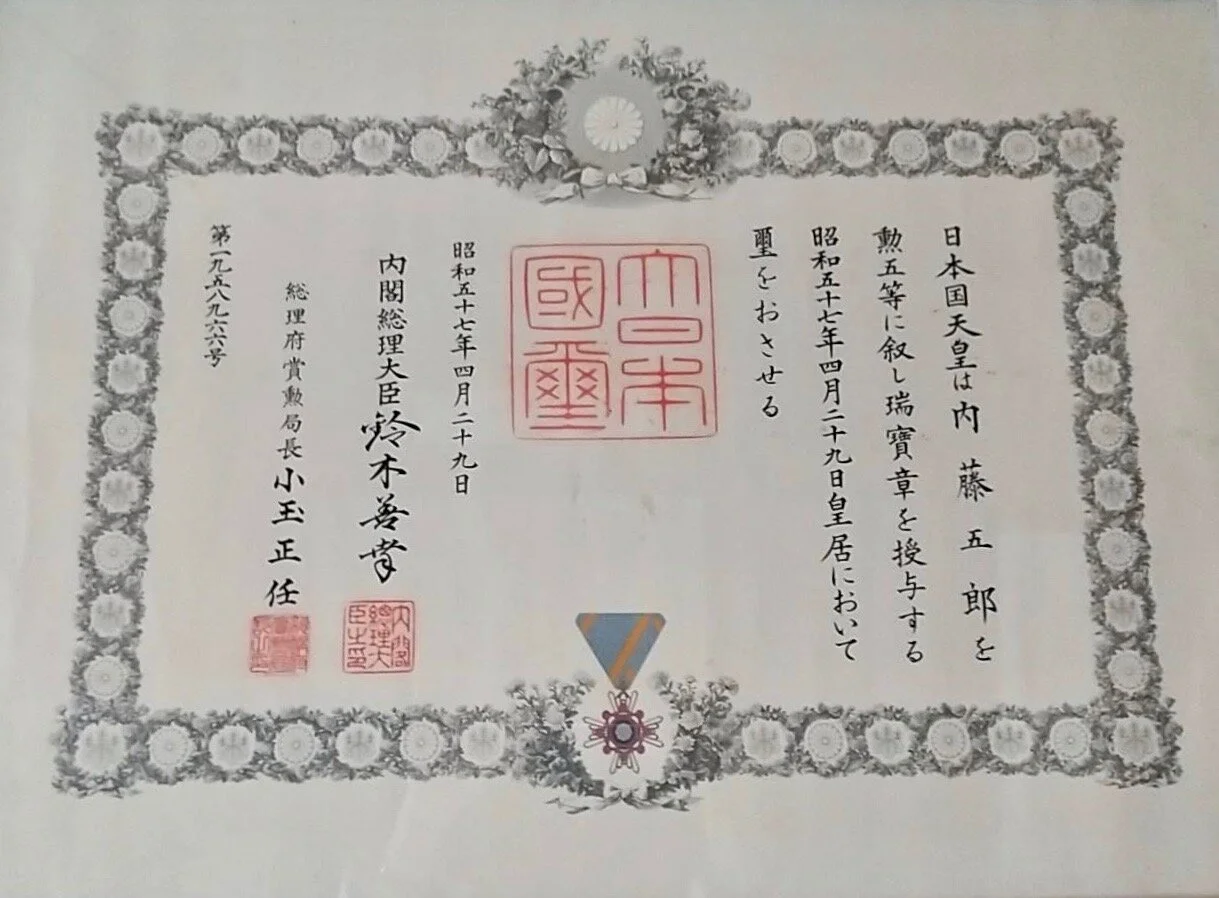 日本国天皇は内藤五郎を
勲五等に叙し瑞寶章を授与する
昭和五十七年四月二十九日皇居において
璽をおさせる
大日本
國璽
昭和五十七年四月二十九日
内閣総理大臣鈴木善幸
内閣
総理大
臣之印
総理府賞勲局長小玉正任
第一九五八九六六号